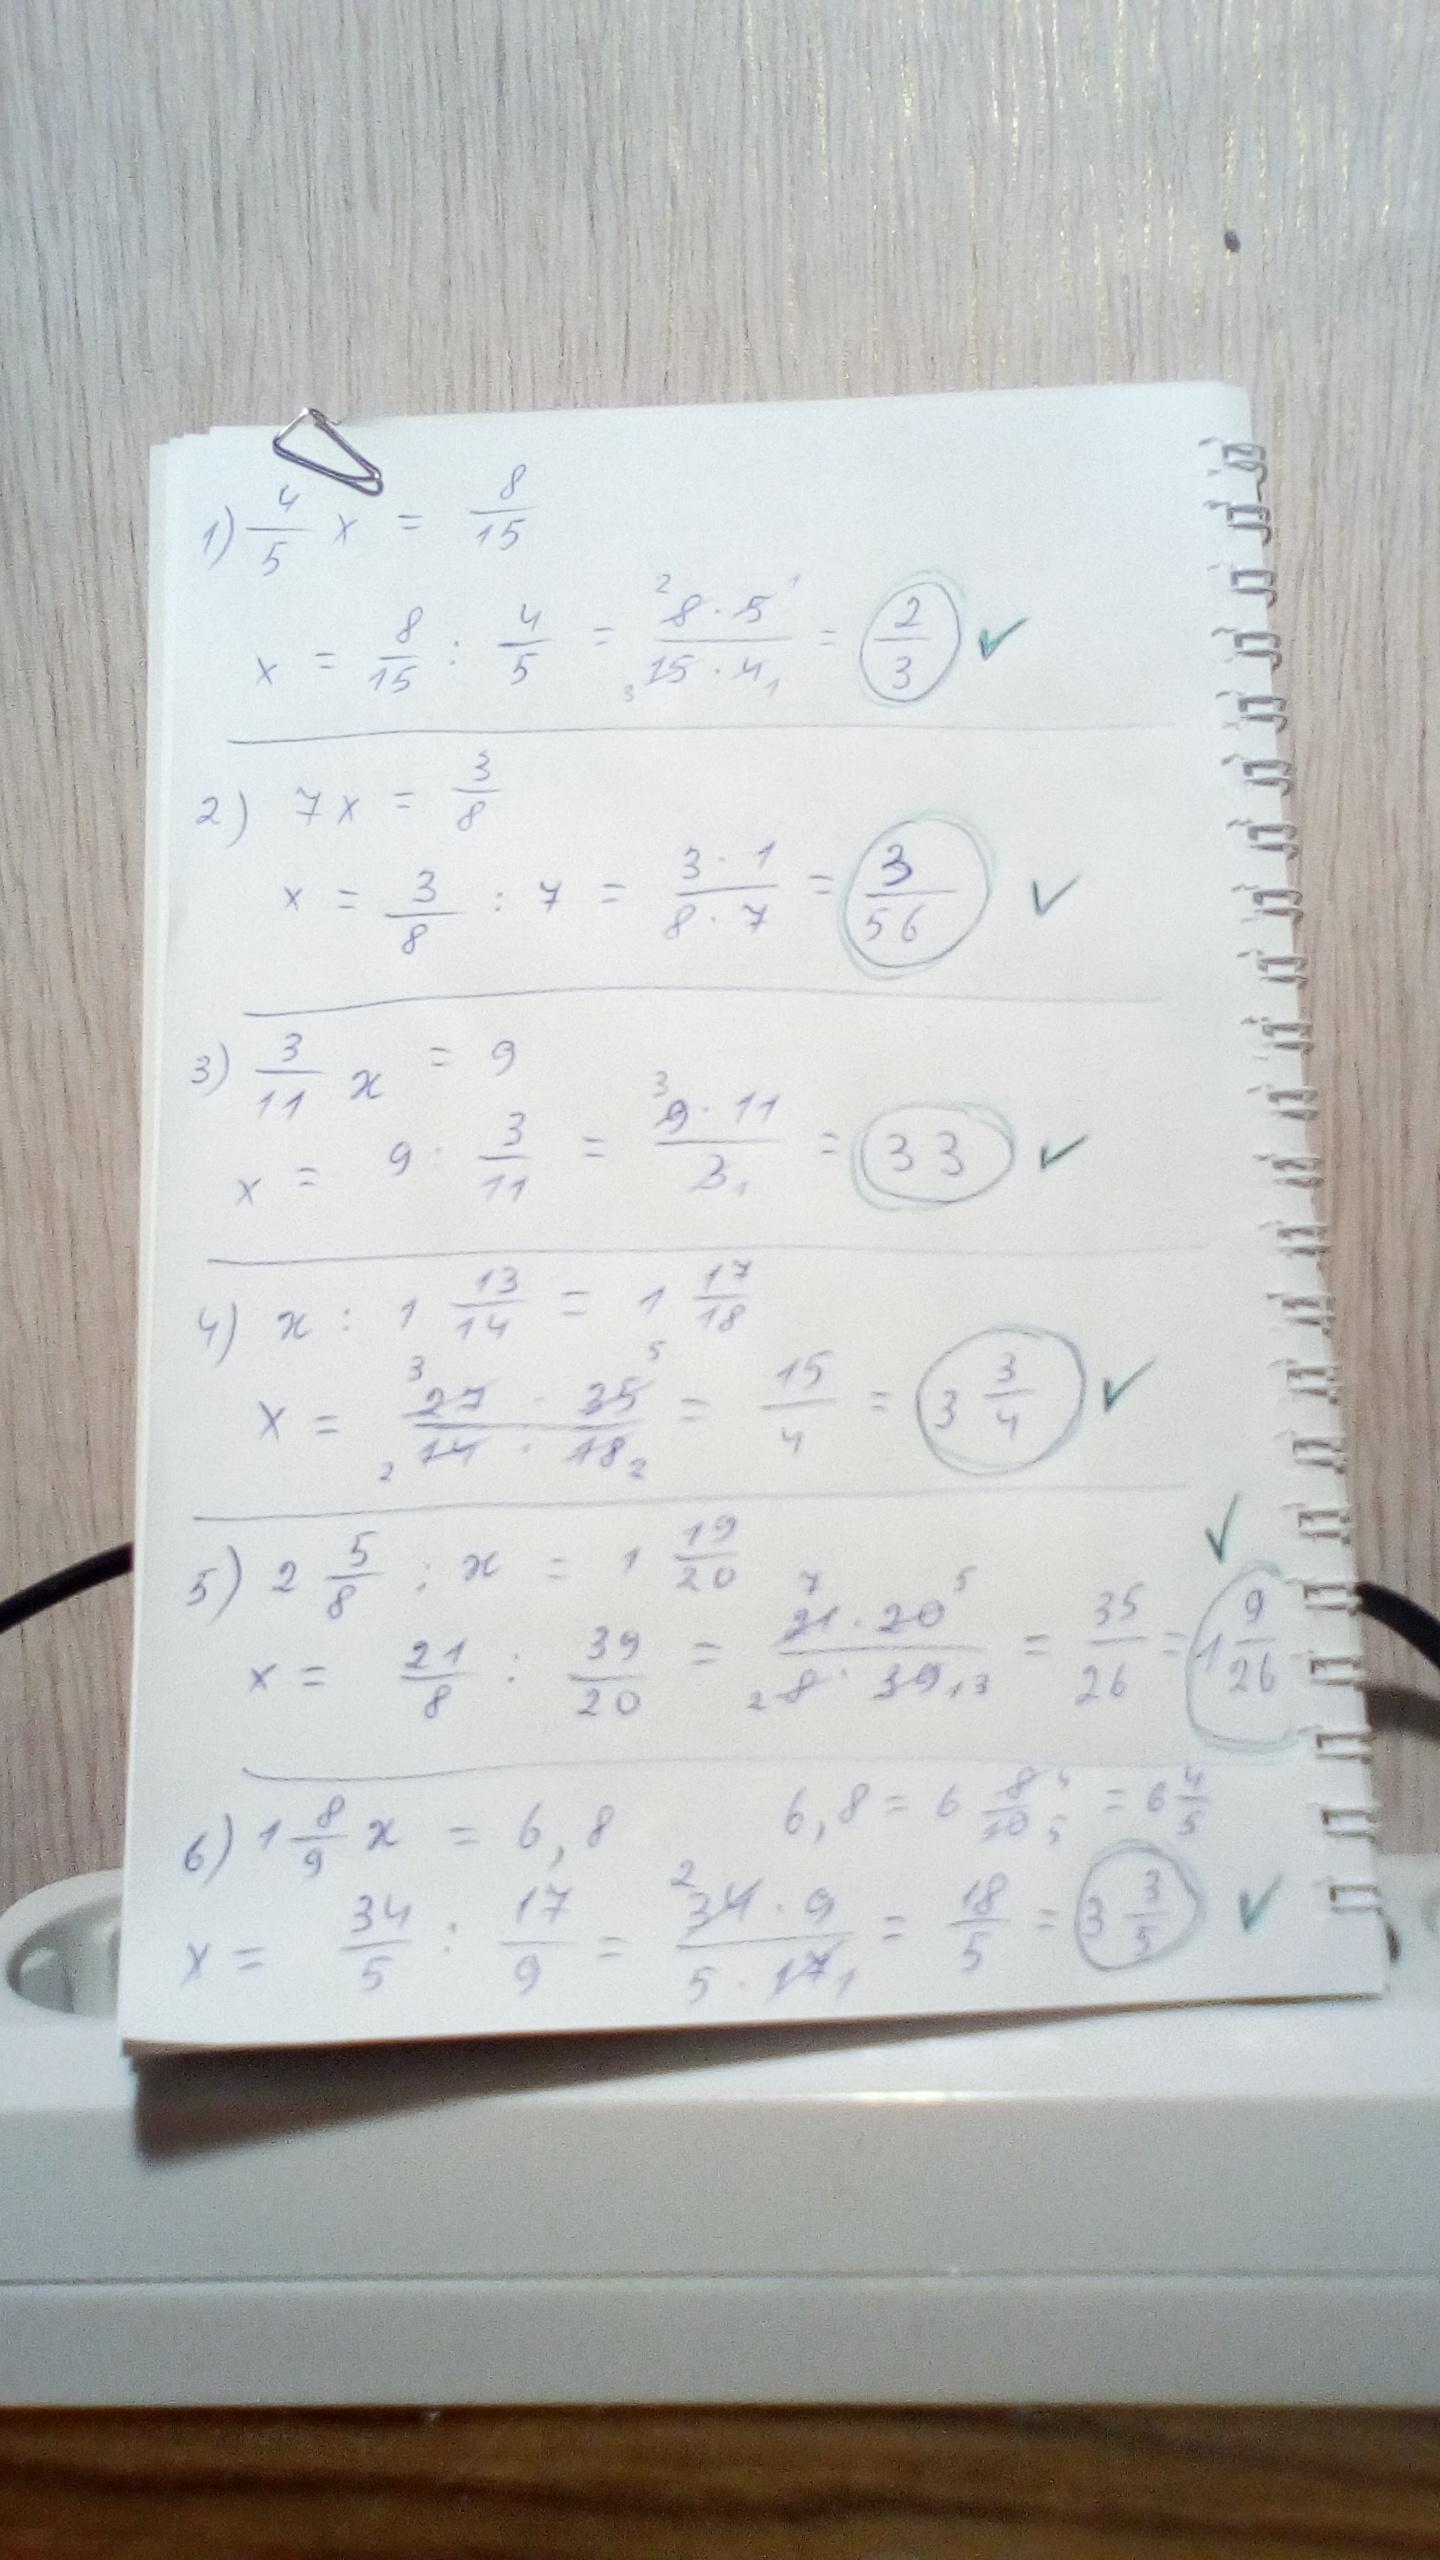 1) 4/5 x = 8/15
x = 8/15 : 4/5 = ²8 · 5¹ / ₃15 · 4₁ = 2/3 ✓
2) 7x = 3/8
x = 3/8 : 7 = 3 · 1 / 8 · 7 = 3/56 ✓
3) 3/11 x = 9
x = 9 : 3/11 = ³9 · 11 / 3₁ = 33 ✓
4) x : 1 13/14 = 1 17/18
x = ³27 · 35⁵ / ₂14 · 18₂ = 15/4 = 3 3/4 ✓
5) 2 5/8 : x = 1 19/20
x = 21/8 : 39/20 = ⁷21 · 20⁵ / ₂8 · 39₁₃ = 35/26 = 1 9/26 ✓
6) 1 8/9 x = 6,8 6,8 = 6 8⁴/10₅ = 6 4/5
x = 34/5 : 17/9 = ²34 · 9 / 5 · 17₁ = 18/5 = 3 3/5 ✓